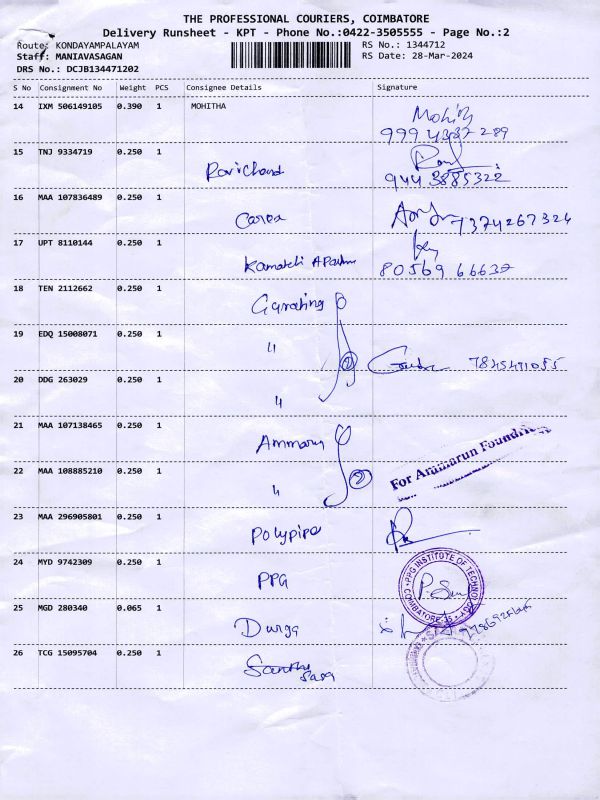 THE PROFESSIONAL COURIERS, COIMBATORE
Delivery Runsheet - KPT - Phone No.:0422-3505555 - Page No.:2
Route: KONDAYAMPALAYAM RS No.: 1344712
Staff: MANIAVASAGAN RS Date: 28-Mar-2024
DRS No.: DCJB134471202
S No Consignment No Weight PCS Consignee Details Signature
14 IXM 506149105 0.390 1 MOHITHA Mohith
9994337289
15 TNJ 9334719 0.250 1 Ravichand
9443885322
16 MAA 107836489 0.250 1 7374267324
17 UPT 8110144 0.250 1 Kamatchi
80569 66632
18 TEN 2112662 0.250 1
19 EDQ 15008071 0.250 1 〃 2 7845471055
20 DDG 263029 0.250 1 〃
21 MAA 107138465 0.250 1 Ammarun
For Ammarun Foundries
22 MAA 108885210 0.250 1 〃 2
23 MAA 296905801 0.250 1 Polypipe
24 MYD 9742309 0.250 1 PPG
PPG INSTITUTE OF TECHNOLOGY COIMBATORE-35
25 MGD 280340 0.065 1 Durga
26 TCG 15095704 0.250 1 Sara